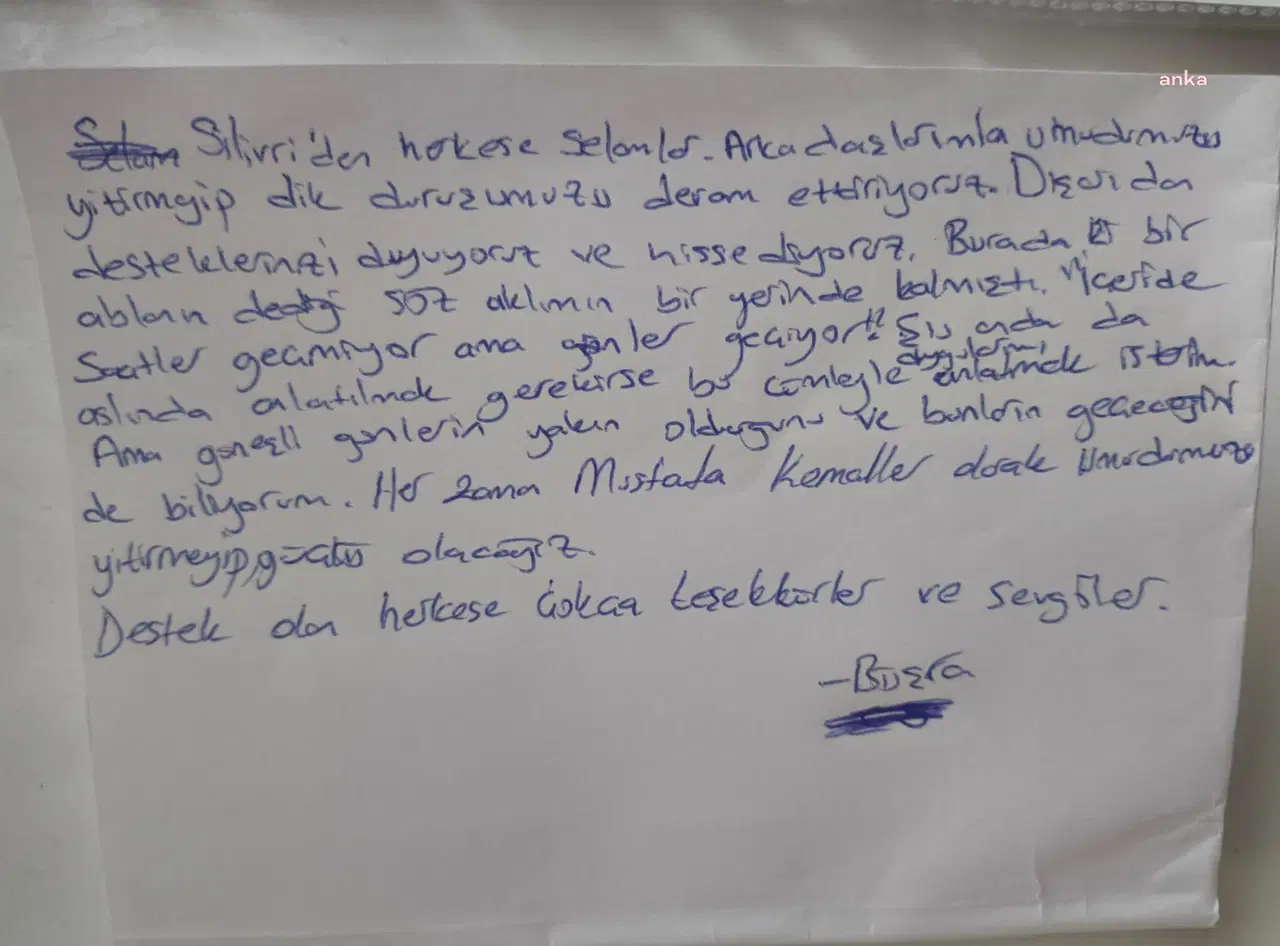 anka
Selam Silivri'den herkese selamlar. Arkadaşlarımla umudumuzu
yitirmeyip dik duruşumuzu devam ettiriyoruz. Dışarıdan
desteklerinizi duyuyoruz ve hissediyoruz. Burada bir
ablanın dediği söz aklımın bir yerinde kalmıştı. "İçeride
Saatler geçmiyor ama günler geçiyor!" Şu anda da
aslında anlatılmak gerekirse bu cümleyle duygularımı anlatmak istedim.
Ama güneşli günlerin yakın olduğunu ve bunların geçeceğini
de biliyorum. Her zaman Mustafa Kemaller olarak Umudumuzu
yitirmeyip, güçlü olacağız.
Destek olan herkese Çokça teşekkürler ve sevgiler.
-Büşra